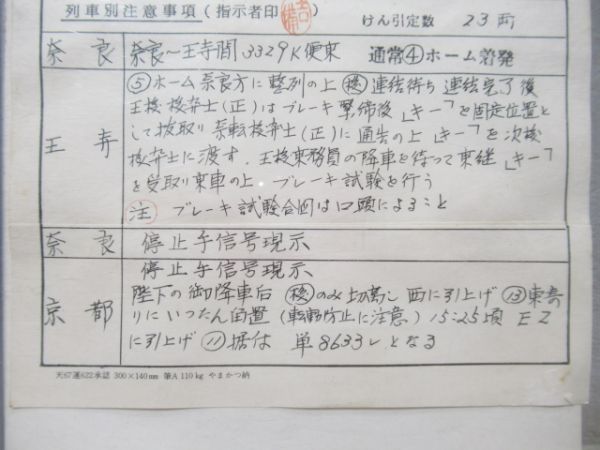 列車別注意事項(指示者印)
けん引定数 23両
奈良 奈良〜王寺間3329K便乗 通常④ホーム着発
王寺 ⑤ホーム奈良方に整列の上 後連結待ち 連結完了後
王検検弁士(正)はブレーキ緊締後「キー」を固定位置と
して抜取り奈転検弁士(正)に通告の上「キー」を次検
検弁士に渡す. 王検乗務員の降車を待って乗継「キー」
を受取り乗車の上 ブレーキ試験を行う
注 ブレーキ試験合図は口頭によること
奈良 停止手信号現示
京都 停止手信号現示
陛下の御降車后 後のみ切離し 西に引上げ ⑬東寄
りにいったん留置(転動防止に注意) 15:25頃 E2
に引上げ ⑪据付 単8633レとなる
天67運622承認 300×140mm 筆A 110kg やまかつ納